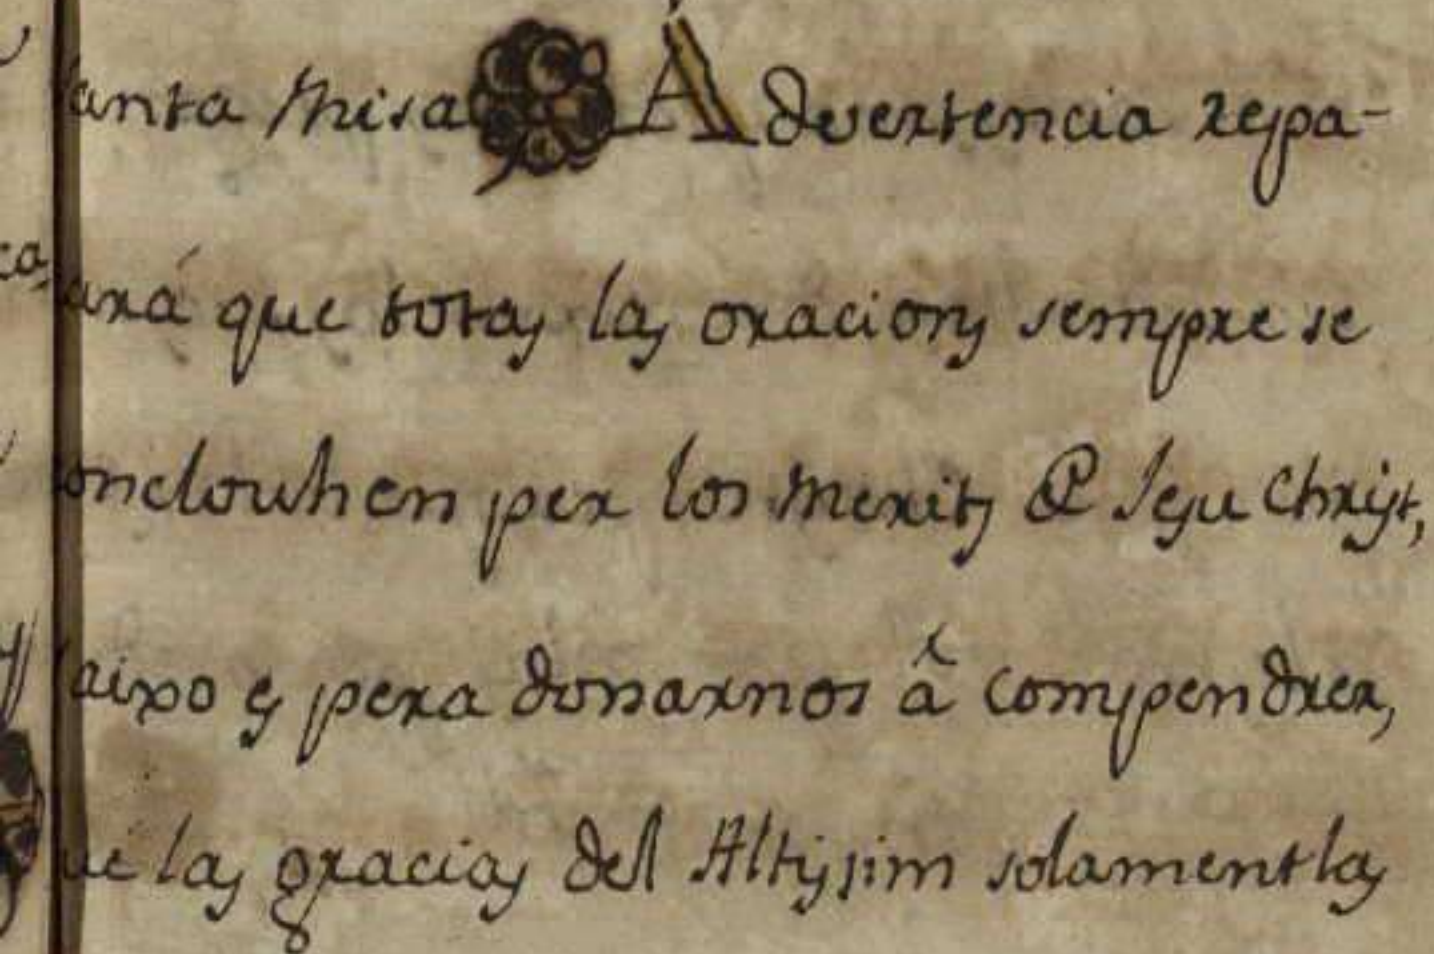 anta Misa Advertencia repa-
ará que totas las oracions sempre se
onclouhen per los merits de Jesu Christ,
aixo es pera donarnos â compendrer,
ue las gracias del Altissim solament las